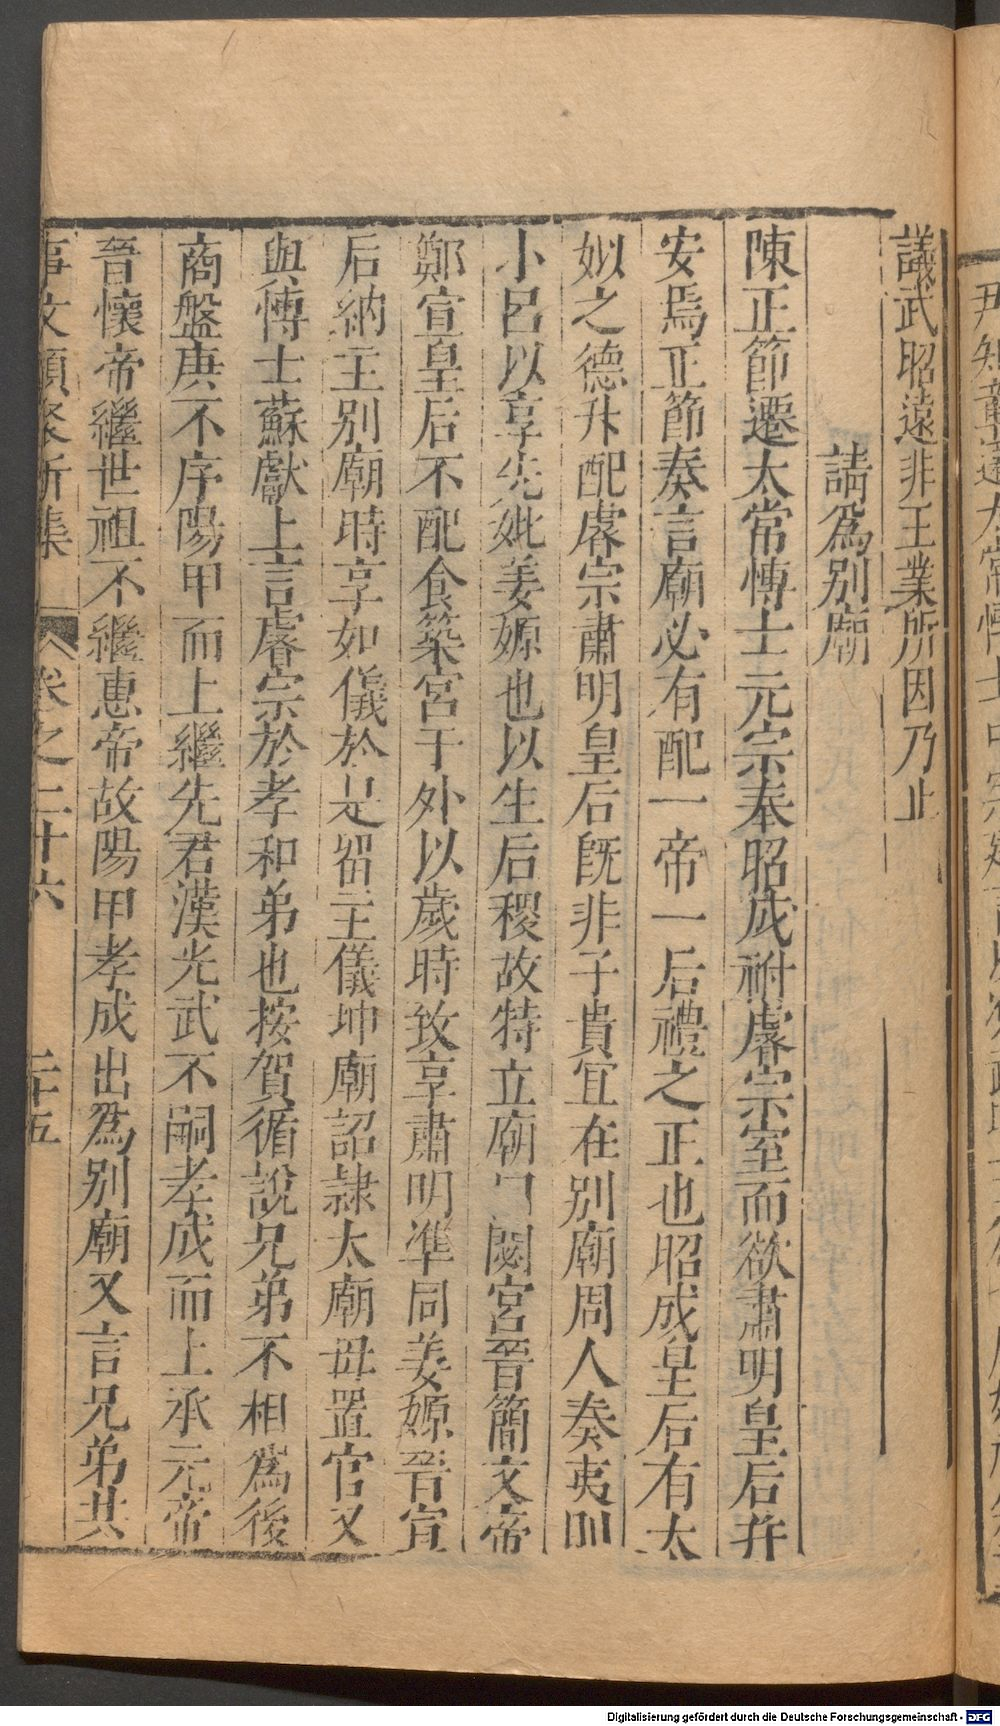 議武昭遠非王業所因乃止
請爲別廟
陳正節遷太常博士元宗奉昭成祔睿宗室而欲肅明皇后并
安焉正節奏言廟必有配一帝一后禮之正也昭成皇后有太
姒之德升配睿宗肅明皇后旣非子貴宜在別廟周人奏夷則
小呂以享先妣姜嫄也以生后稷故特立廟曰閟宮晉簡文帝
鄭宣皇后不配食築宮于外以歲時致享肅明準同姜嫄晉宣
后納主別廟時享如儀於是留主儀坤廟詔隷太廟毋置官又
與博士蘇獻上言睿宗於孝和弟也按賀循說兄弟不相爲後
商盤庚不序陽甲而上繼先君漢光武不嗣孝成而上承元帝
晉懷帝繼世祖不繼惠帝故陽甲孝成出爲別廟又言兄弟共
事文類聚新集 卷之二十六 二十五
Digitalisierung gefördert durch die Deutsche Forschungsgemeinschaft - DFG